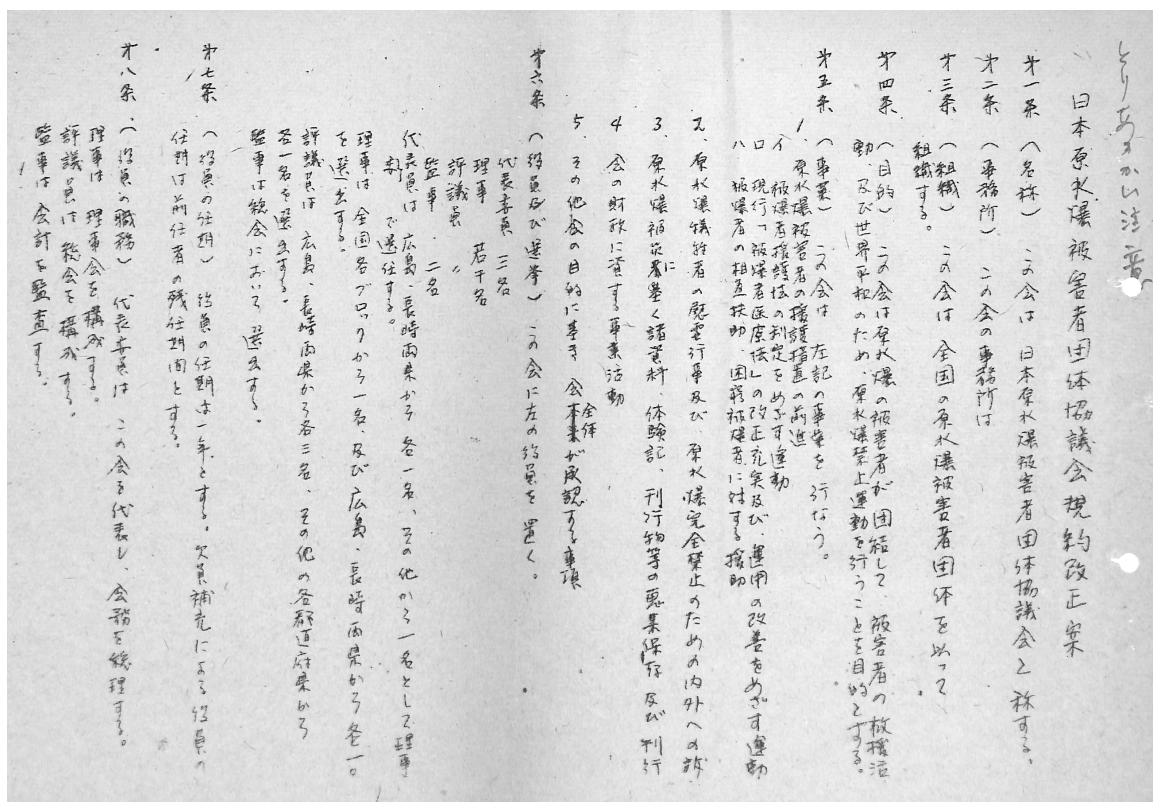 とりあつかい注意
日本原水爆被害者団体協議会規約改正案
第一条 (名称) この会は 日本原水爆被害者団体協議会と称する。
第二条 (事務所) この会の事務所は
第三条 (組織) この会は 全国の原水爆被害者団体を以って
組織する。
第四条 (目的) この会は原水爆の被害者が団結して、被害者の救援活
動、及び世界平和のため、原水爆禁止運動を行うことを目的とする。
第五条 (事業) この会は 左記の事業を行なう。
1. 原水爆被害者の援護措置の前進
イ 被爆者援護法の制定をめざす運動
ロ 現行「被爆者医療法」の改正充実及び、運用の改善をめざす運動
ハ 被爆者の相互扶助、困窮被爆者に対する援助
2. 原水爆犠牲者の慰霊行事及び、原水爆完全禁止のための内外への訴
3. 原水爆被災に基く諸資料、体験記、刊行物等の蒐集保存及び刊行
4 会の財政に資する事業活動
5. その他会の目的に基き 会全体が承認する事項
第六条 (役員及び選挙) この会に左の役員を置く。
代表委員 三名
理事 若干名
評議員 〃
監事 二名
代表委員は 広島、長崎両県から各一名、その他から一名として理事
で選任する。
理事は 全国各ブロックから一名、及び広島、長崎両県から各一名
を選出する。
評議員は 広島、長崎両県から各三名、その他の各都道府県から
各一名を選出する。
監事は総会において選出する。
第七条 (役員の任期) 役員の任期は一年とする。欠員補充による役員の
任期は前任者の残任期間とする。
第八条 (役員の職務) 代表委員は この会を代表し、会務を総理する。
理事は 理事会を構成する。
評議員は 総会を構成する。
監事は会計を監査する。